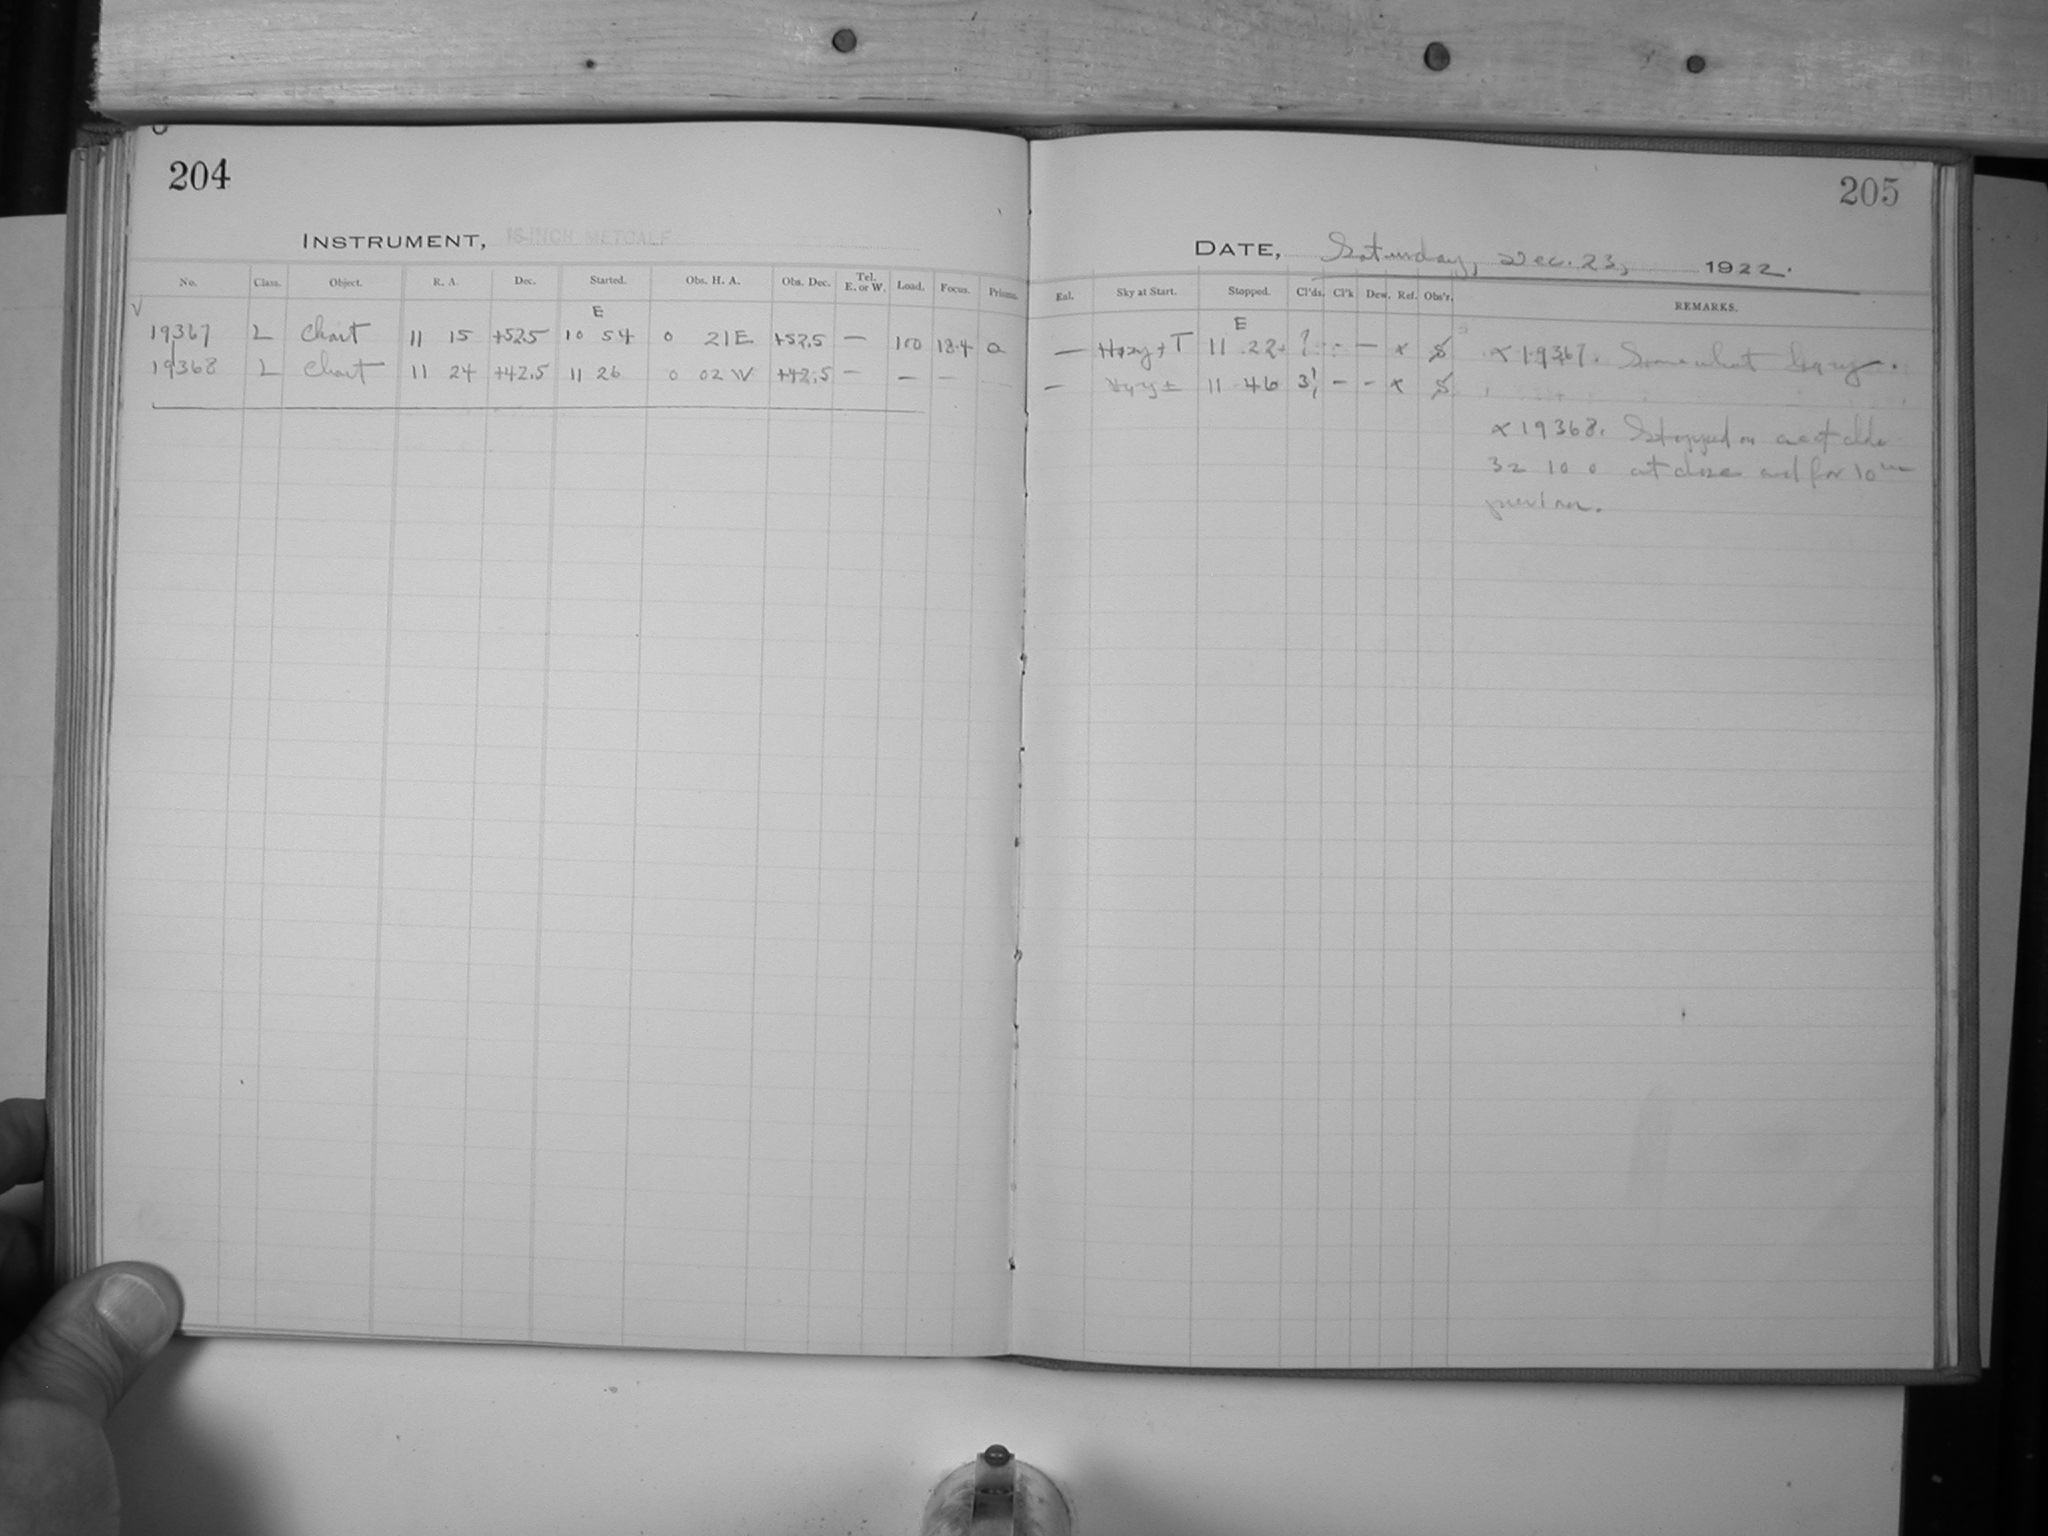 204
INSTRUMENT, 16-INCH METCALF
No. Class. Object. R. A. Dec. Started. Obs. H. A. Obs. Dec. Tel. E. or W. Load. Focus. Prisms.
E
19367 L Chart 11 15 +52.5 10 54 0 21 E +52.5 — 100 13.4 0
19368 L Chart 11 24 +42.5 11 26 0 02 W +42.5 — — —
205
DATE, Saturday, Dec. 23, 1922.
Eal. Sky at Start. Stopped. Cl'ds. Cl'k Dew. Ref. Obs'r. REMARKS.
E
— Hazy + T 11 22 ? — x S x 19367. Somewhat hazy.
— Hazy ± 11 46 3 — — x S
x 19368. Stopped on acct clds
32 10 0 at close and for 10m
previous.